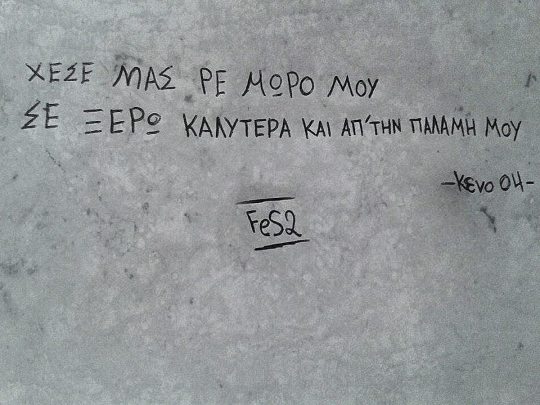 ΧΕΣΕ ΜΑΣ ΡΕ ΜΩΡΟ ΜΟΥ
ΣΕ ΞΕΡΩ ΚΑΛΥΤΕΡΑ ΚΑΙ ΑΠ'ΤΗΝ ΠΑΛΑΜΗ ΜΟΥ
-Κενο 04-
FeS2